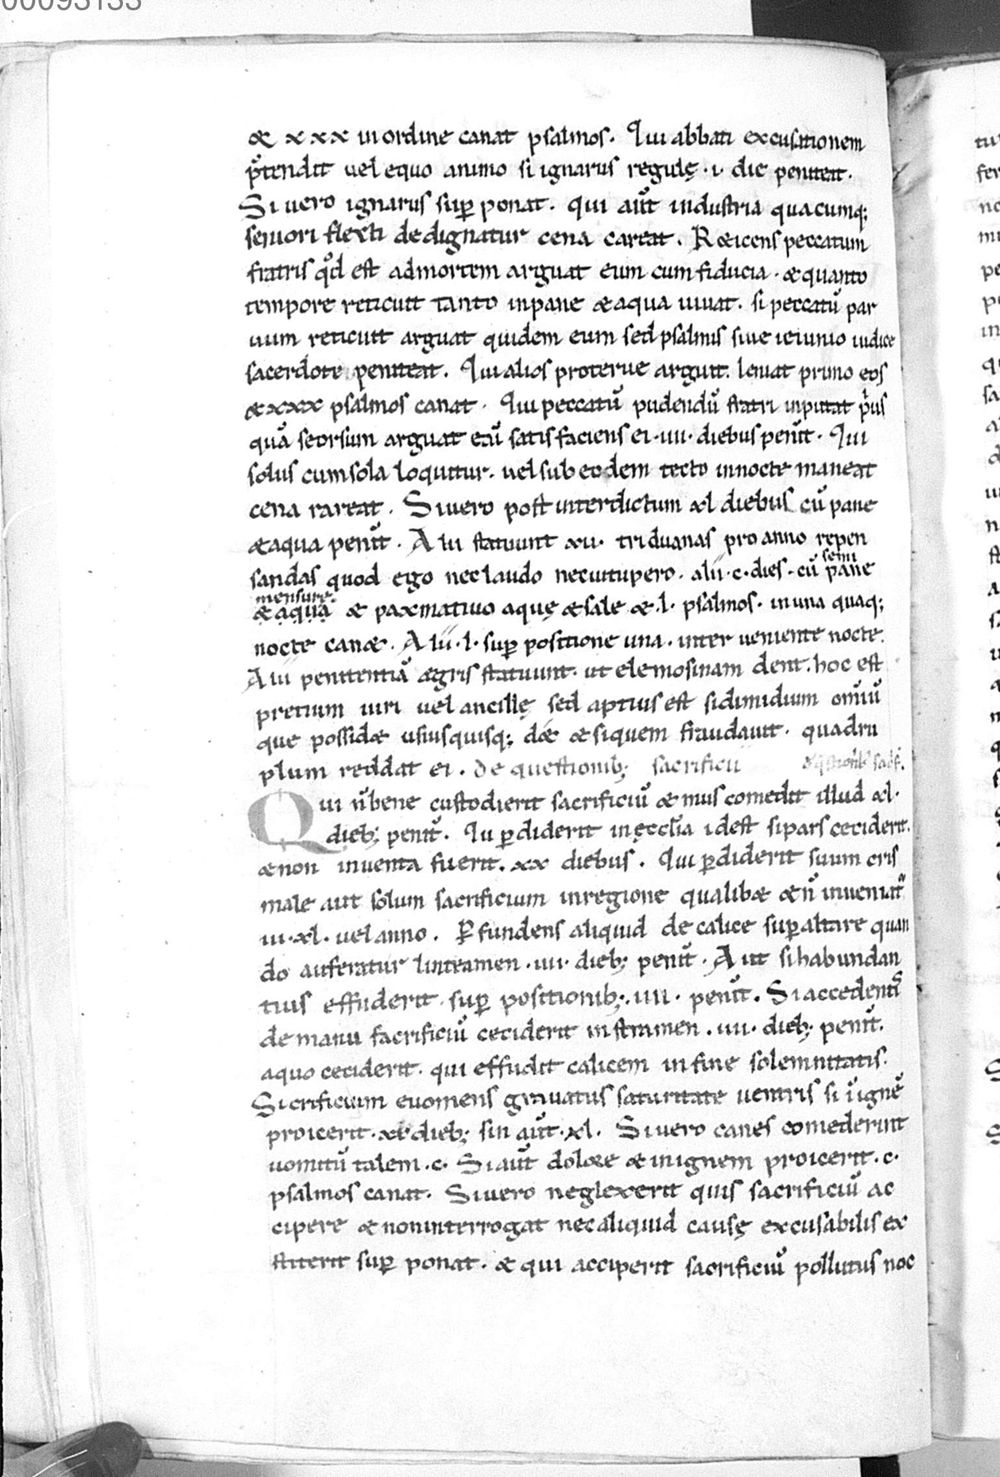 00093133
& xxx in ordine canat psalmos. Qui abbati excusationem
p̄tendit uel equo animo si ignarus regulę .i. die peniteat.
Si uero ignarus sup̄ ponat. qui aūt industria quacumq;
seniori flecti dedignatur cena careat. Reticens peccatum
fratris qd̄ est admortem arguat eum cum fiducia. & quanto
tempore reticuit tanto inpane & aqua uiuat. si peccatū par
uum reticuit arguat quidem eum sed psalmis siue ieiunio iudice
sacerdote peniteat. Qui alios proterue arguit. leniat primo eos
& xxx psalmos canat. Qui peccatū pudendū fratri inputat p̄us
quā seorsum arguat eū satisfaciens ei .iii. diebus penit̄. Qui
solus cum sola loquitur. uel sub eodem tecto innocte maneat
cena careat. Si uero post interdictum xl diebus cū pane
& aqua penit̄. Alii statuunt xii. triduanas pro anno repen
sandas quod ego nec laudo nec uitupero. alii .c. dies. cū semi pane
mensure.
& aqua & paxmatiuo aque & sale & .l. psalmos. in una quaq;
nocte can&. Alii .l. sup̄ positione una. inter ueniente nocte.
Alii penitentiā ęgris statuunt. ut elemosinam dent. hoc est
pretium uiri uel ancillę sed aptius est si dimidium omiū
que possid& usiusquisq; d& & siquem fraudauit. quadru
plum reddat ei. de questionib; sacrificii
Qui n̄ bene custodierit sacrificiū & mus comedit illud xl.
dieb; penit̄. Qui p̄diderit in ęccl̄ia id est si pars ceciderit.
& non inuenta fuerit. xx diebus. Qui p̄diderit suum cris
male aut solum sacrificium inregione qualib& & n̄ inueniat̄
iii. xl. uel anno. P̄fundens aliquid de calice sup̄ altare quan
do auferatur linteamen .iii. dieb; penit̄. Aut si habundan
tius effuderit sup̄ positionib; .iiii. penit̄. Si accedenti
de manu sacrificiū ceciderit in stramen .iii. dieb; penit̄.
a quo ceciderit. qui effudit calicem in fine solemnitatis.
Sicrificium euomens grauatus saturitate uentris si i īgnē
proicerit. xx dieb; sin aūt. xl. Si uero canes comederint
uomitū talem .c. Si aūt dolore & in ignem proicerit .c.
psalmos canat. Si uero neglexerit quis sacrificiū ac
cipere & non interrogat nec aliquid causę excusabilis ex
stiterit sup̄ ponat. & qui acciperit sacrificiū pollutus noc